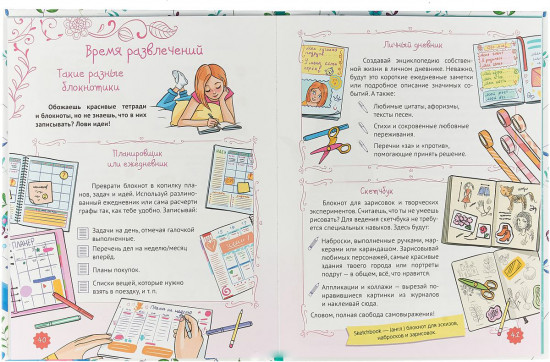 Время развлечений
Такие разные
блокнотики
Обожаешь красивые тетради
и блокноты, но не знаешь, что в них
записывать? Лови идеи!
Планировщик
или ежедневник
Преврати блокнот в копилку пла-
нов, задач и идей. Используй разлино-
ванный ежедневник или сама расчерти
графы так, как тебе удобно. Записывай:
Задачи на день, отмечая галочкой
выполненные.
Перечень дел на неделю/месяц
вперёд.
Планы покупок.
Списки вещей, которые нужно
взять в поездку, и т.п.
ПЛАНЕР
40
Личный дневник
Создавай энциклопедию собствен-
ной жизни в личном дневнике. Неважно,
будут это короткие ежедневные заметки
или подробное описание значимых со-
бытий. А также:
Любимые цитаты, афоризмы,
тексты песен.
Стихи и сокровенные любовные
переживания.
Перечни «за» и «против»,
помогающие принять решение.
Скетчбук
Блокнот для зарисовок и творческих
экспериментов. Считаешь, что ты не умеешь
рисовать? Для ведения скетчбука не требу-
ется специальных навыков. Здесь будут:
Наброски, выполненные ручками, мар-
керами или карандашом. Зарисовывай
любимых персонажей, самые красивые
здания твоего города или портреты
подруг — в общем, всё, что нравится.
Аппликации и коллажи — вырезай по-
нравившиеся картинки из журналов
и наклеивай сюда.
Словом, полная свобода самовыражения!
Sketchbook — (англ.) блокнот для эскизов,
набросков и зарисовок.
41